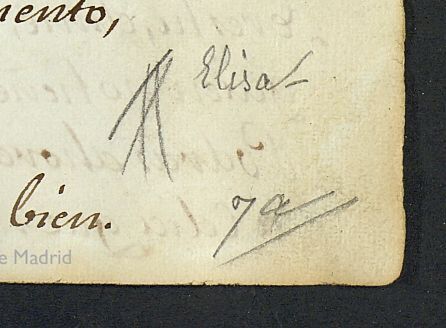 mento,
Elisa
bien.
7a
e Madrid